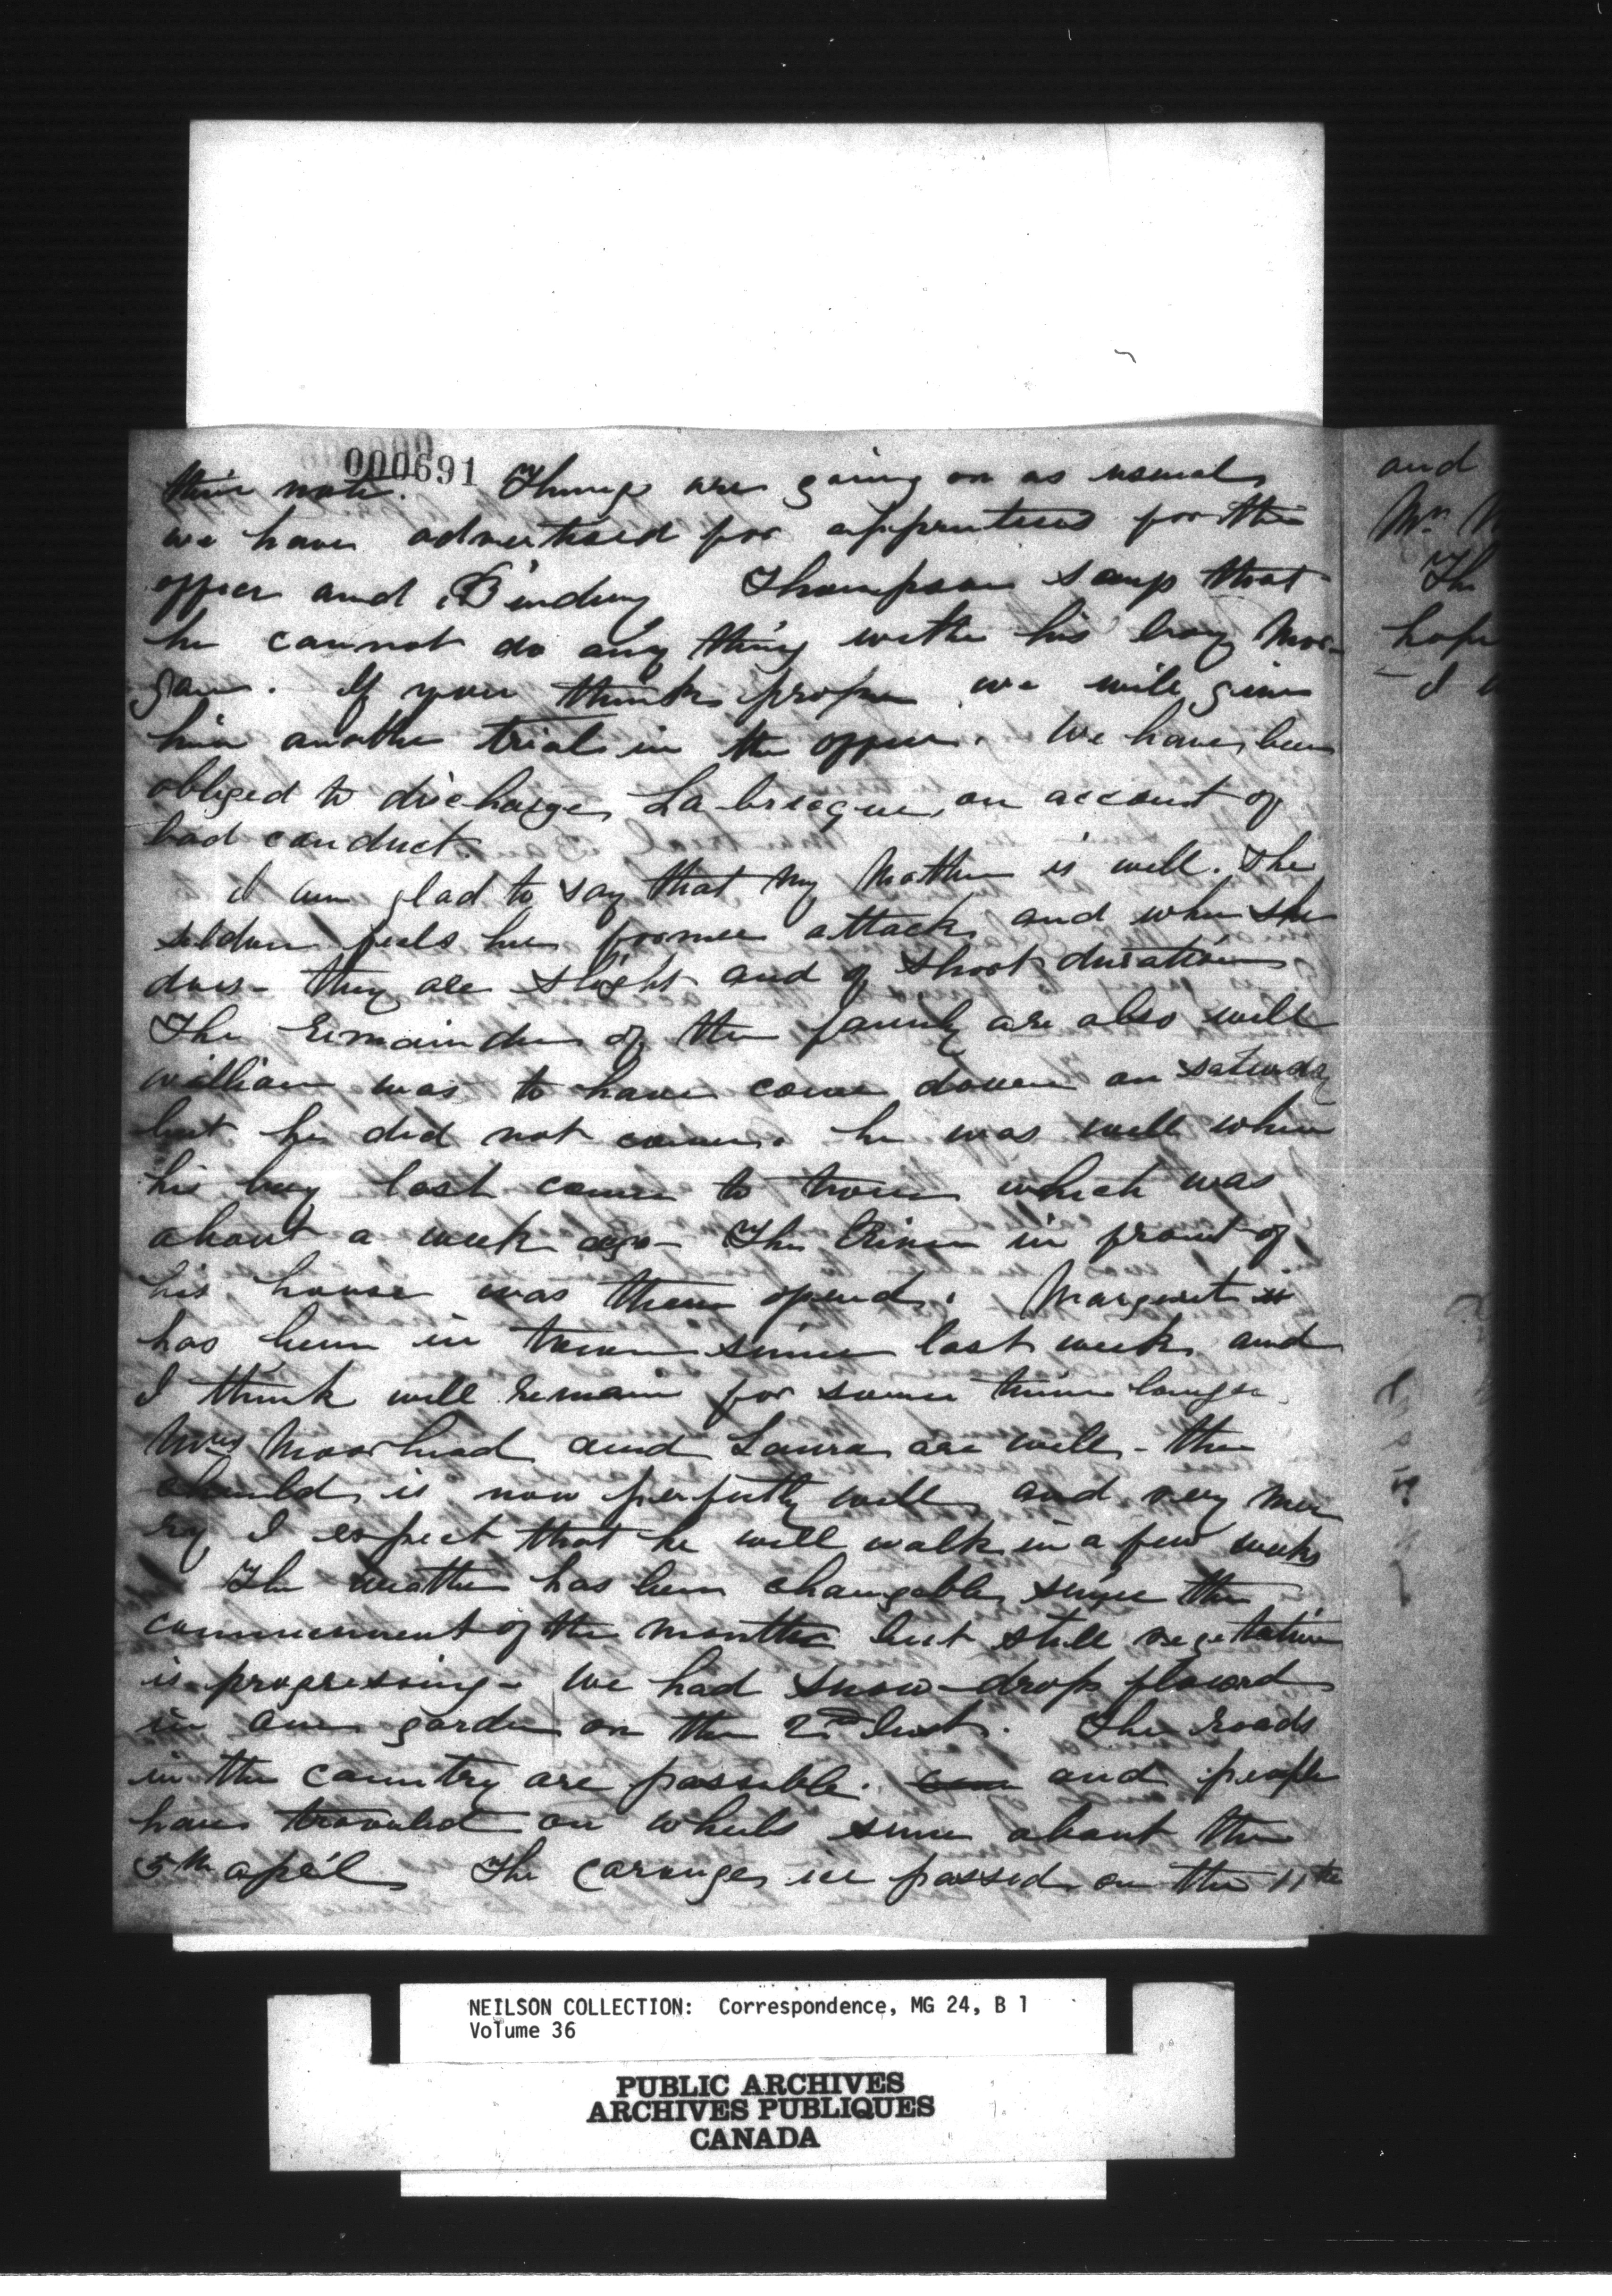 000691
their note. Things are going on as usual
we have advertised for apprentices for the
office and Bindery Thompson says that
he cannot do any thing with his boy Mor-
gan. If you think proper we will give
him another trial in the office. We have been
obliged to discharge Labrecque, on account of
bad conduct.
I am glad to say that my Mother is well. She
seldom feels her former attack and when she
does - they are slight and of short duration
The remainder of the family are also well
William was to have come down on saturday
but he did not come. he was well when
his boy last came to town which was
about a week ago - The River in front of
his house was then opend. Margaret is
has been in town since last week and
I think will remain for some time longer
Mrs Moorhead and Laura are well - the
child is now perfectly well and very mer
ry I expect that he will walk in a few weeks
The weather has been changable since the
commencment of the month but still vegetation
is progressing - we had snow-drops flowerd
in our garden on the 2nd Inst. The roads
in the country are passable. and people
have traveled on wheels since about the
5th april The Carouge ice passed on the 11th
and
Mr.
The
hope
I
NEILSON COLLECTION: Correspondence, MG 24, B 1
Volume 36
PUBLIC ARCHIVES
ARCHIVES PUBLIQUES
CANADA